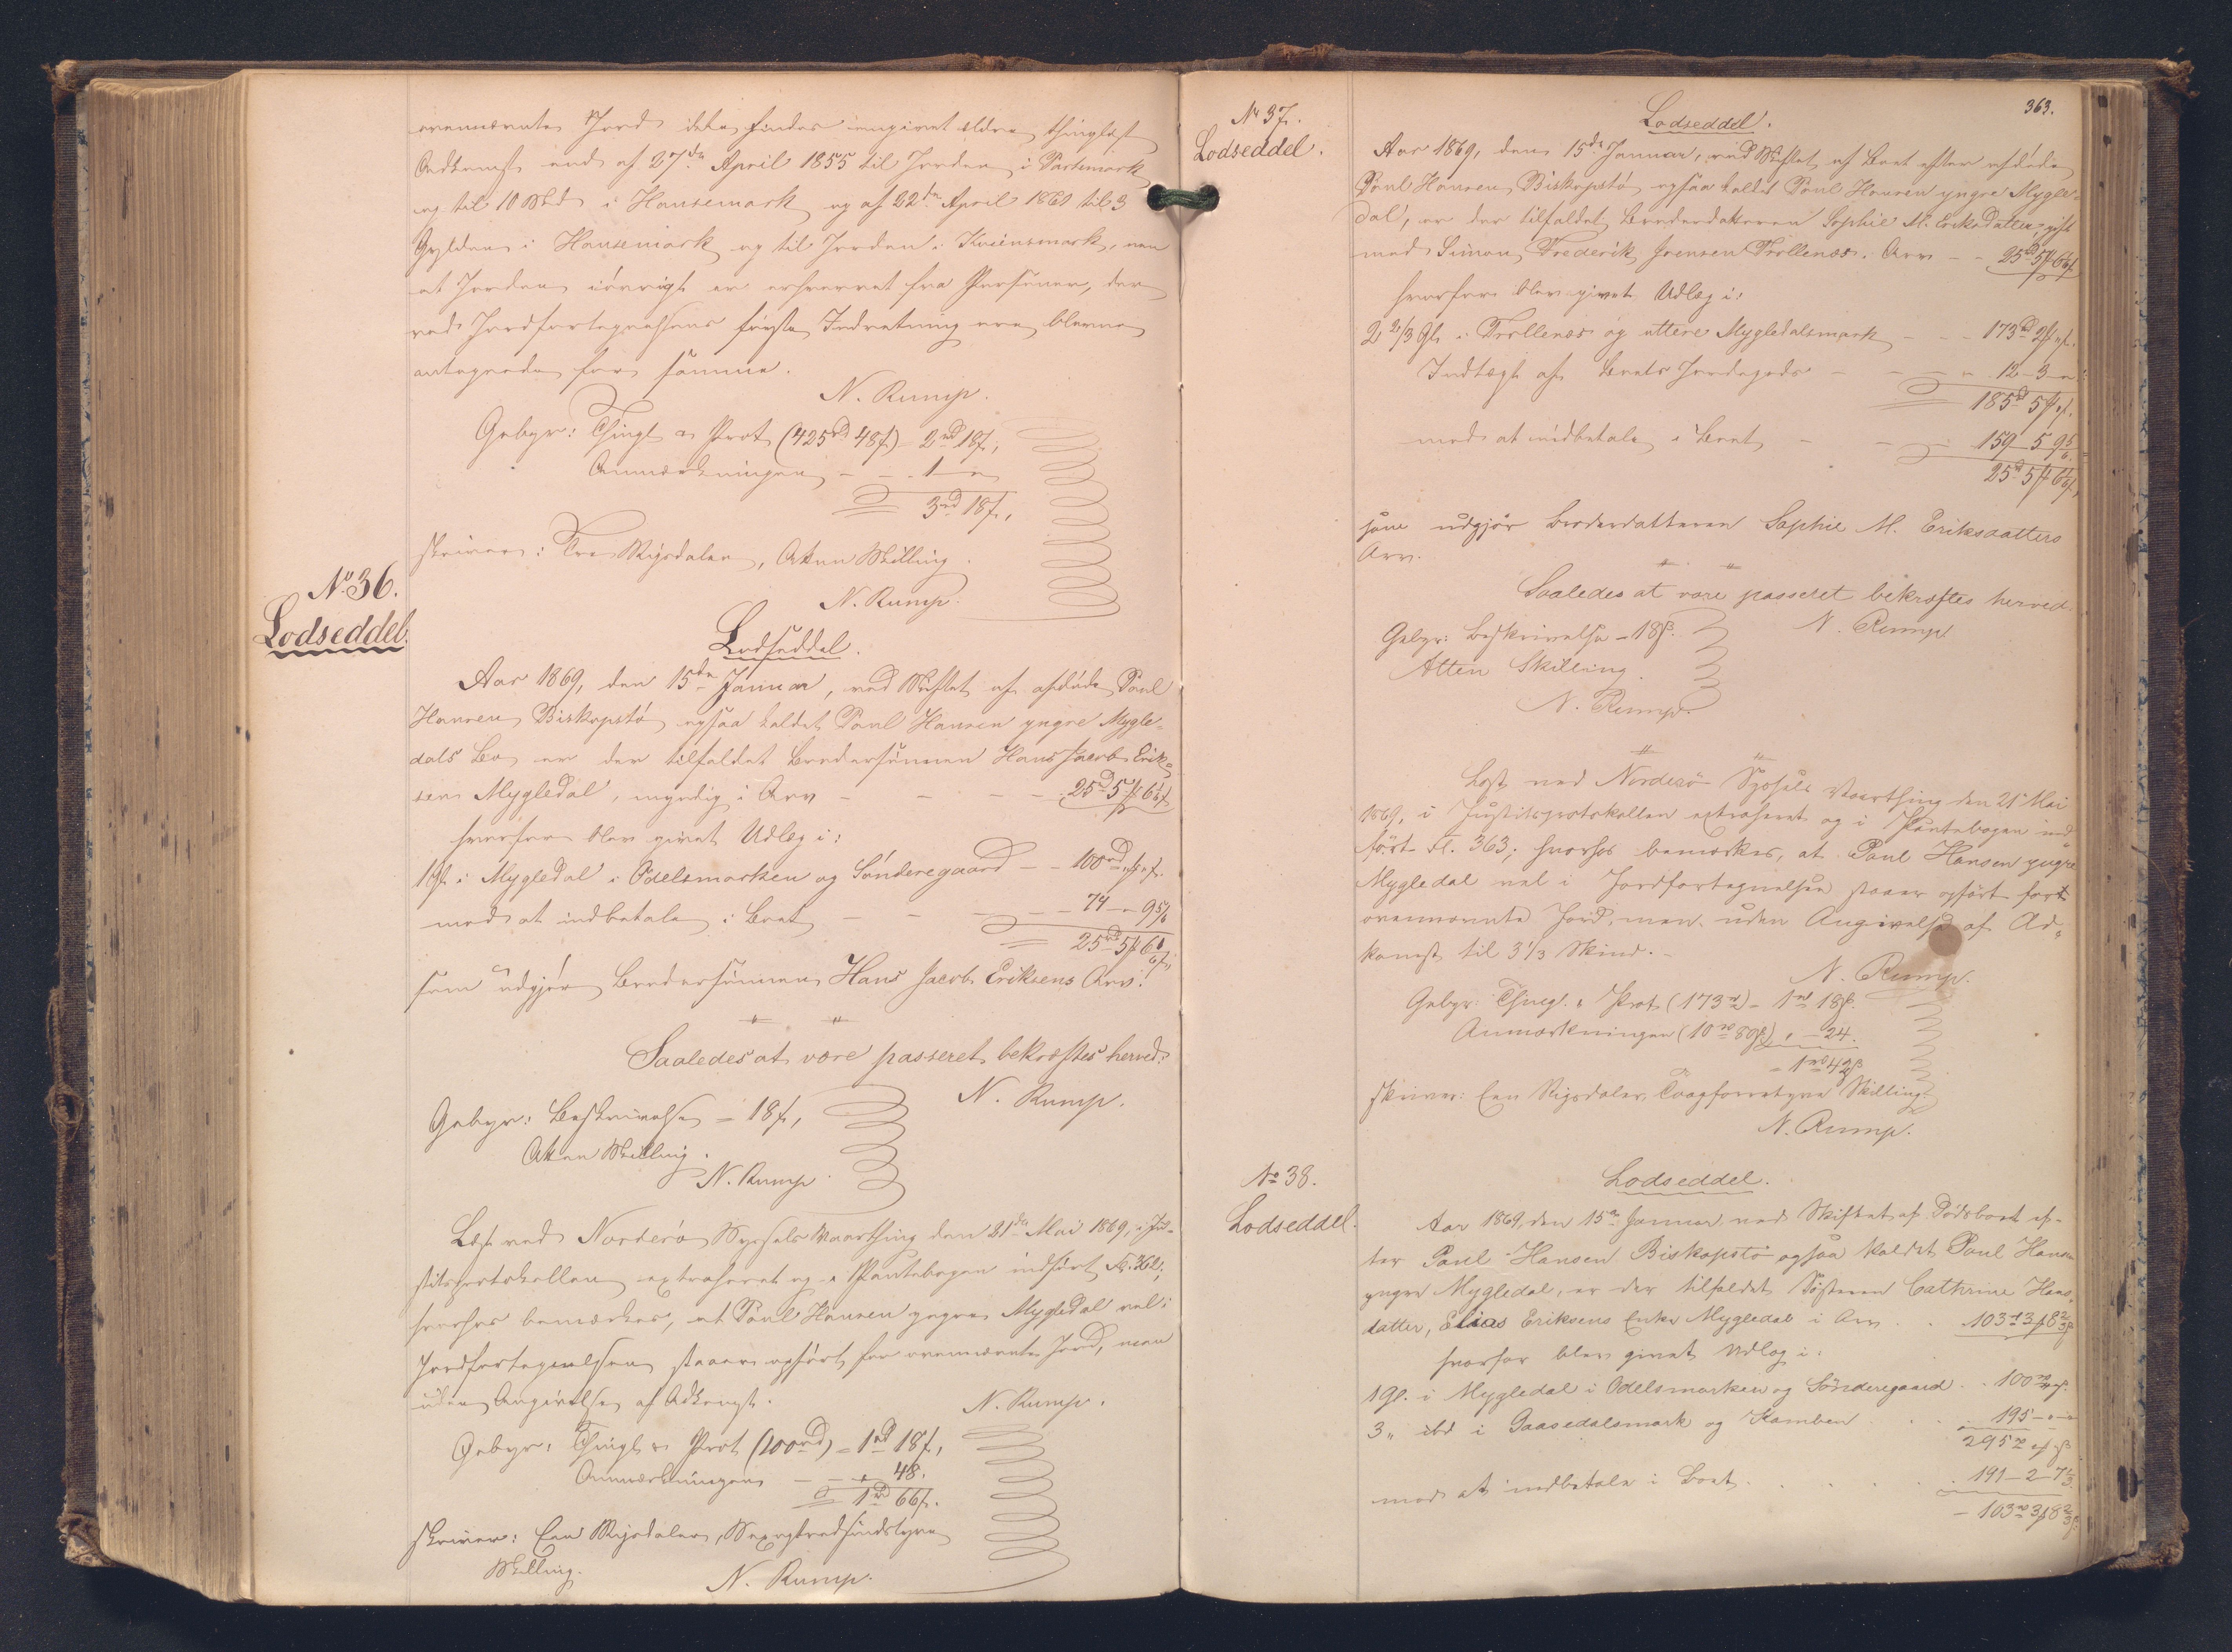 ovennævnte Jord ikke findes angivet ældre thinglæst
Adkomst end af 27de April 1855 til Jorden i
og til 10 Skd i Hansemark og af 22de April 1861 til 3
Gylden i Hansemark og til Jorden i Kviensmark, men
at Jorden iövrigt er erhvervet fra Personer, der
ved Jordfortegnelsens förste Indretning ere blevne
antegnede for samme.
N. Rump.
Gebyr: Thingl. & Prot. (425rd 48ſ) - 2rd 18ſ,
Anmærkningen - - 1 - "
3rd 18ſ.
skriver: Tre Rigsdaler, Atten Skilling.
N. Rump.
No 36.
Lodseddel.
Lodseddel.
Aar 1869, den 15de Januar, ved Skiftet af afdöde Poul
Hansen Biskopstö ogsaa kaldet Poul Hansen yngre Mygle-
dals Bo er der tilfaldet Brodersönnen Hans Jacob Erik-
sen Mygledal, myndig i Arv - - - - 25rd 5ß 6 1/6ſ
hvorfor blev givet Udlæg i:
1 Gl. i Mygledal i Odelsmarken og Sönderegaard - - 100rd " ß " ſ.
mod at indbetale i Boet - - - - 74 - " 9 5/6
25rd 5ß 6 1/6ſ,
som udgjör Brodersönnen Hans Jacob Eriksens Arv.
" "
Saaledes at være passeret bekræftes herved.
N. Rump.
Gebyr: Beskrivelse = 18ſ,
Atten Skilling.
N. Rump.
Læst ved Norderö Syssels Vaarthing den 21de Mai 1869, i Ju-
stitsprotokollen extraheret og i Pantebogen indfört Fl. 362;
hvorhos bemærkes, at Poul Hansen yngre Mygledal vel i
Jordfortegnelsen staaer opfört for ovennævnte Jord, men
uden Angivelse af Adkomst.
N. Rump.
Gebyr: Thingl. & Prot. (100rd) = 1rd 18ſ,
Anmærkningen - - " 48.
1rd 66ſ.
skriver: Een Rigsdaler, Sexogtredsindstyve
Skilling.
N. Rump.
363.
No 37.
Lodseddel.
Lodseddel.
Aar 1869, den 15de Januar, ved Skiftet af Boet efter afdöde
Poul Hansen Biskopstö ogsaa kaldet Poul Hansen yngre Mygle-
dal, er der tilfaldet Broderdatteren Sophie M. Eriksdatter, gift
med Simon Frederik Joensen Trollenæs. Arv - - 25rd 5ß 6 1/6ſ
hvorfor blev givet Udlæg i:
2 2/3 Gl. i Trollenæs og uttere Mygledalsmark - - - 173rd 2ß " ſ.
Indtægt af Boets Jordegods - - - - 12 - 3 - "
185rd 5ß " ſ.
mod at indbetale i Boet - - - 159 - 5 9 5/6
25rd 5ß 6 1/6ſ,
som udgjör Broderdatteren Sophie M. Eriksdatters
Arv.
" "
Saaledes at være passeret bekræftes herved.
N. Rump
Gebyr: Beskrivelse - 18ß.
Atten Skilling.
N. Rump.
" "
Læst ved Norderö Syssels Vaarthing den 21 Mai
1869, i Justitsprotokollen extraheret og i Pantebogen ind-
fört Fl. 363; hvorhos bemærkes, at Poul Hansen yngre
Mygledal vel i Jordfortegnelsen staaer opfört for
ovennævnte Jord, men uden Angivelse af Ad-
komst til 3 1/3 Skind. -
N. Rump.
Gebyr: Thingl. & Prot. (173rd) - 1rd 18ß.
Anmærkningen (10rd 89ß) " - 24.
= 1rd 42ß
skriver: Een Rigsdaler, Toogfyrretyve Skilling
N. Rump.
No 38.
Lodseddel.
Lodseddel.
Aar 1869, den 15de Januar ved Skiftet af Dödsboet ef-
ter Poul Hansen Biskopstö ogsaa kaldet Poul Hansen
yngre Mygledal, er der tilfaldet Söstren Cathrine Hans-
datter, Elias Eriksens Enke Mygledal i Arv . . 103rd 3ß 8 2/3ſ
hvorfor blev givet Udlæg i:
1 Gl. i Mygledal i Odelsmarken og Sönderegaard . . 100rd " ß.
3 " ibd i Gaasedalsmark og Kamben . . . 195 - " - "
295rd " ß " ß
mod at indbetale i Boet . . . . . 191 - 2 - 7 1/3
- 103rd 3ß 8 2/3ß.